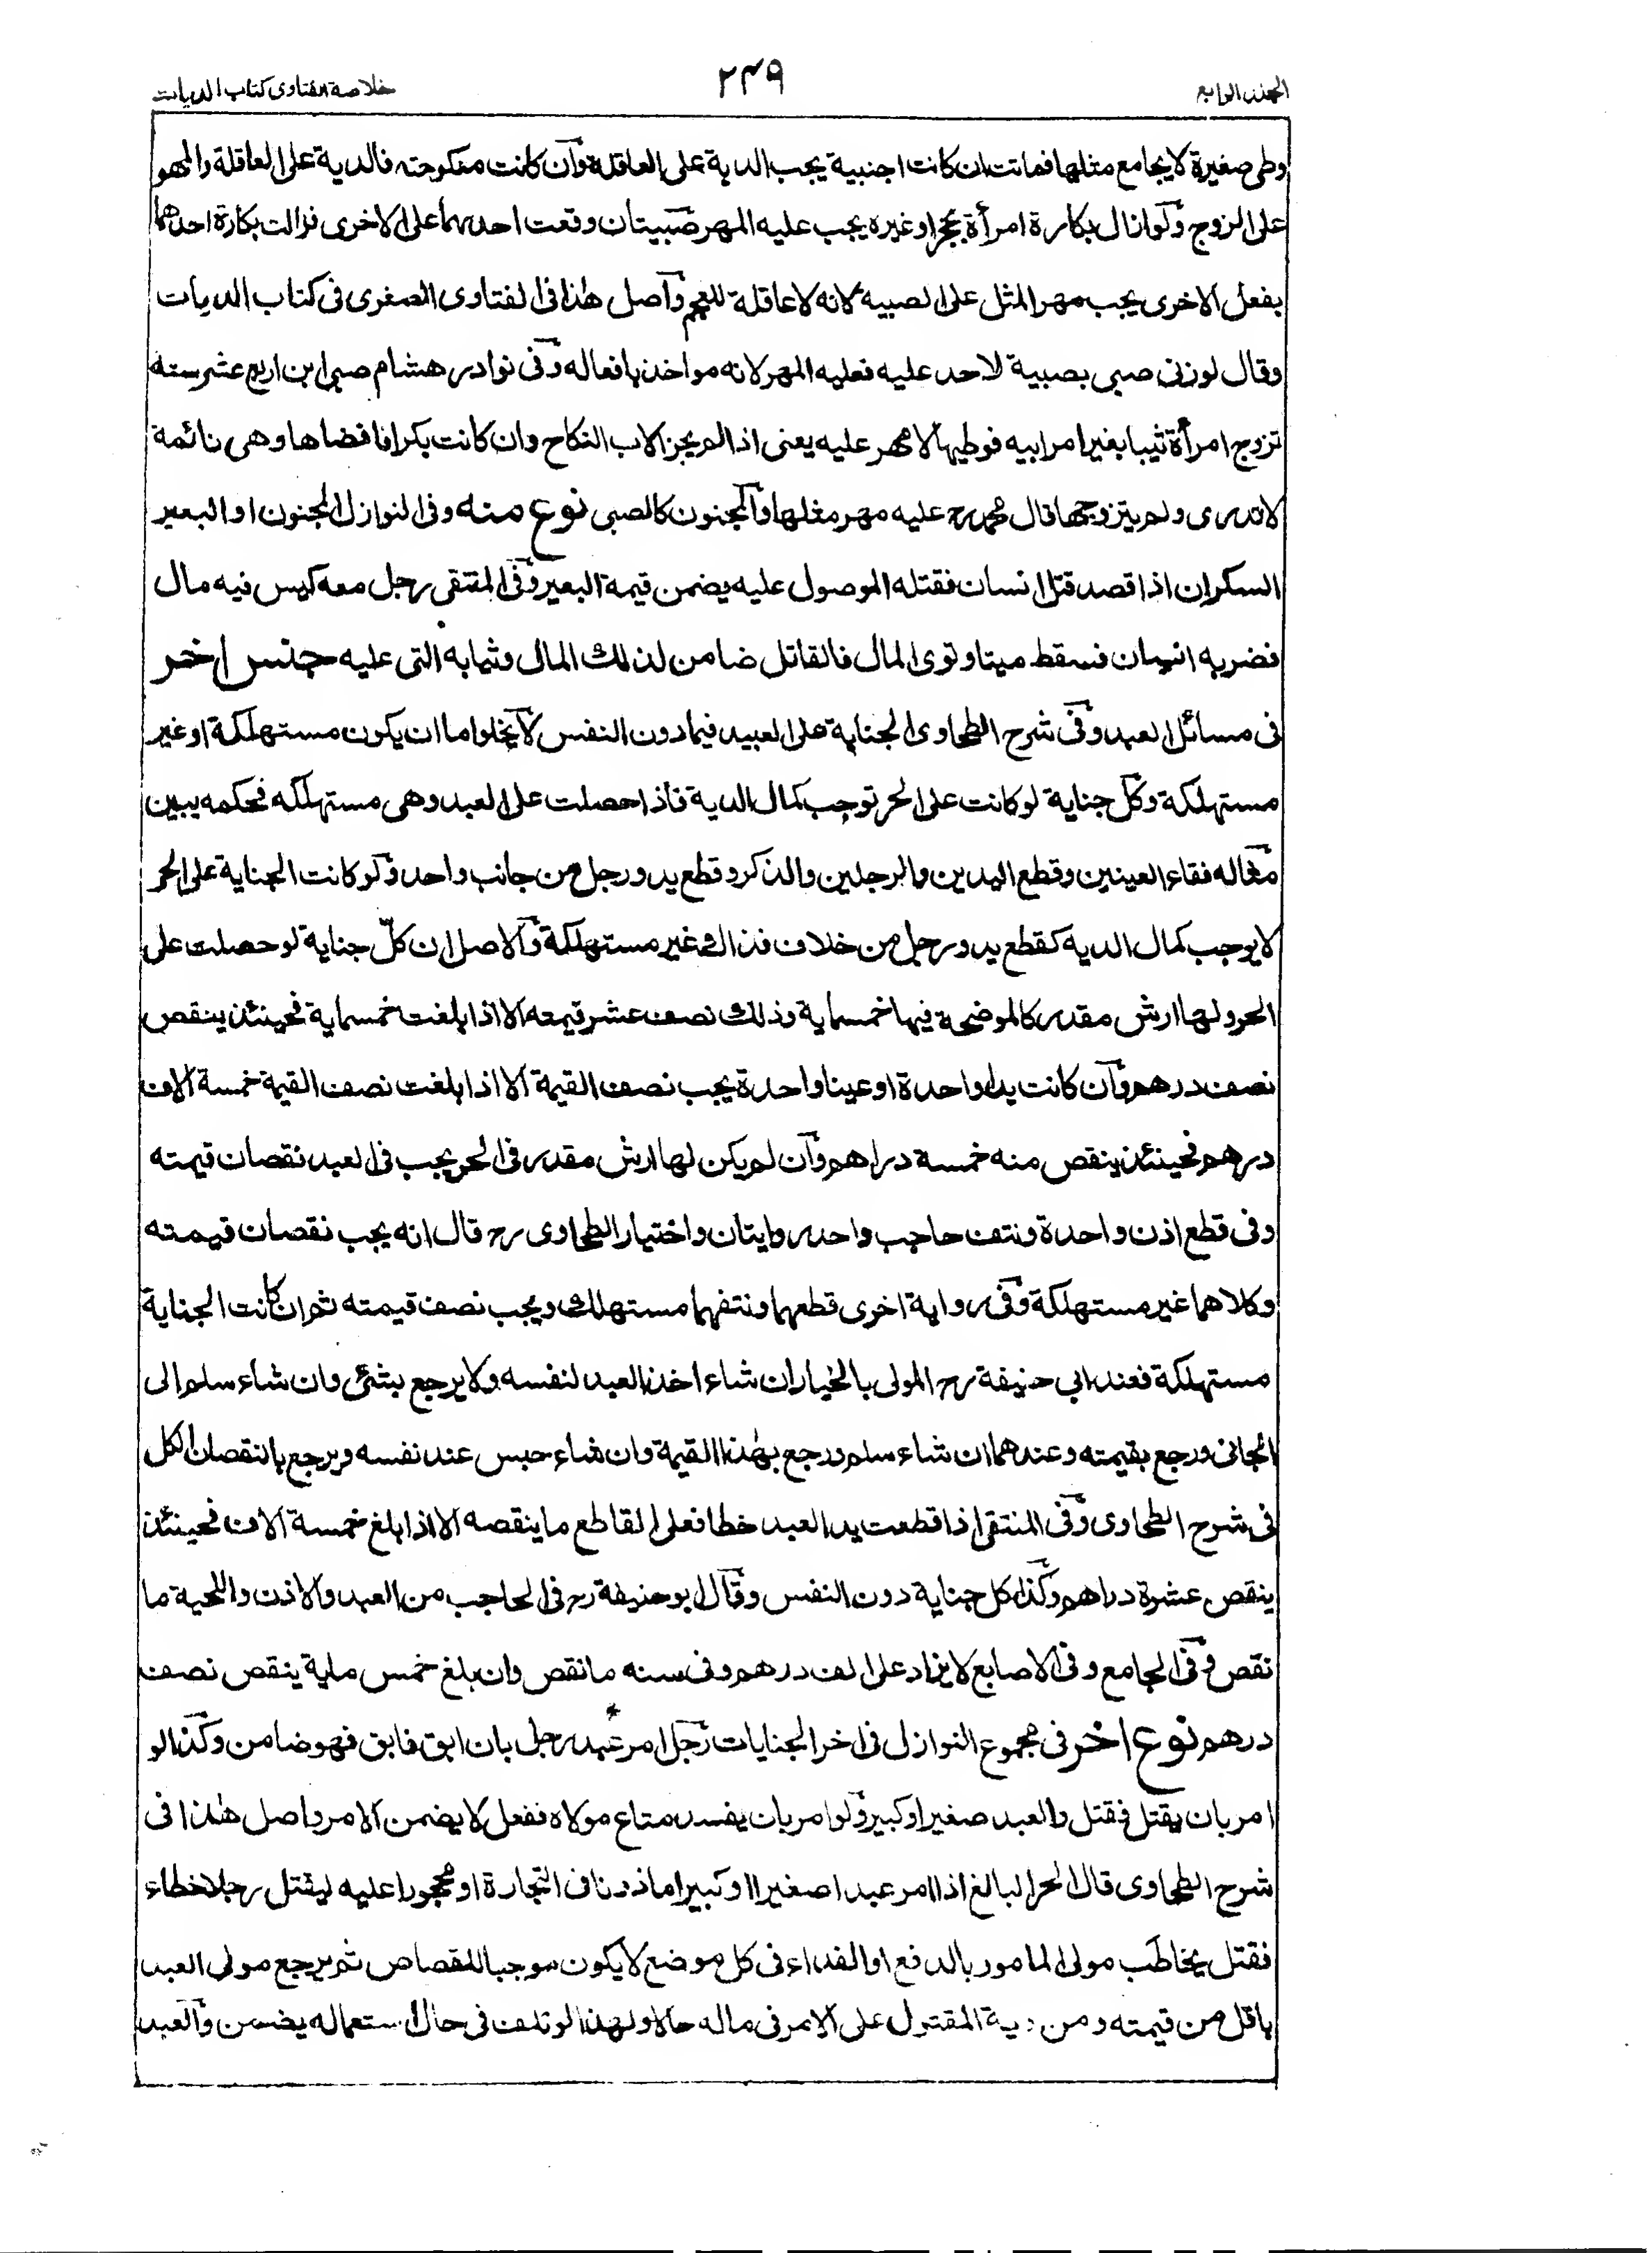 الجلد الرابع
٢٤٩
خلاصة الفتاوى كتاب الديات
وطى صغيرة لا يجامع مثلها فماتت ان كانت اجنبية يجب الدية على العاقلة وان كانت منكوحته فالدية على العاقلة والمهر
على الزوج ولو ازال بكارة امرأة بحجر او غيره يجب عليه المهر صبيتان وقعت احدىهما على الاخرى فزالت بكارة احدهما
بفعل الاخرى يجب مهر المثل على الصبيه لانه لا عاقلة للعجم واصل هذا فى الفتاوى الصغرى فى كتاب الديات
وقال لو زنى صبى بصبية لا حد عليه فعليه المهر لانه مواخذ بافعاله وفى نوادر هشام صبى ابن اربع عشر سنه
تزوج امرأة ثيبا بغير امر ابيه فوطيها لا مهر عليه يعنى اذا لم يجز الاب النكاح وان كانت بكرا فافضاها وهى نائمة
لا تدرى ولم يتزوجها قال محمد رح عليه مهر مثلها والمجنون كالصبى نوع منه وفى النوازل المجنون او البعير
السكران اذا قصد قتل انسان فقتله الموصول عليه يضمن قيمة البعير وفى المنتقى رجل معه كيس فيه مال
فضربه انسان فسقط ميتا وتوى المال فالقاتل ضامن لذلك المال وثيابه التى عليه جنس اخر
فى مسائل العبد وفى شرح الطحاوى الجناية على العبيد فيما دون النفس لا يخلوا ما ان يكون مستهلكة او غير
مستهلكة وكل جناية لو كانت على الحر توجب كمال الدية فاذا حصلت على العبد وهى مستهلكه فحكمه يبين
مثاله فقاء العينين وقطع اليدين والرجلين والذكر وقطع يد ورجل من جانب واحد ولو كانت الجناية على الحر
لا يوجب كمال الديه كقطع يد ورجل من خلاف فذالك غير مستهلكة والاصل ان كلّ جناية لو حصلت على
الحر ولها ارش مقدر كالموضحة فيها خمسماية وذلك نصف عشر قيمته الا اذا بلغت خمسماية فحينئذ ينقص
نصف درهم وان كانت يدا واحدة او عينا واحدة يجب نصف القيمة الا اذا بلغت نصف القيمة خمسة الاف
درهم فحينئذ ينقص منه خمسة دراهم وان لم يكن لها ارش مقدر فى الحر يجب فى العبد نقصان قيمته
وفى قطع اذن واحدة ونتف حاجب واحد روايتان واختيار الطحاوى رح قال انه يجب نقصان قيمته
وكلاهما غير مستهلكة وفى رواية اخرى قطعهما ونتفهما مستهلك ويجب نصف قيمته ثم ان كانت الجناية
مستهلكة فعند ابى حنيفة رح المولى بالخيار ان شاء اخذ العبد لنفسه ولا يرجع بشئ وان شاء سلم الى
الجانى ورجع بقيمته وعندهما ان شاء سلم ورجع بهذا القيمة وان شاء حبس عند نفسه ويرجع بالنقصان الكل
فى شرح الطحاوى وفى المنتقى اذا قطعت يد العبد خطا فعلى القاطع ما ينقصه الا اذا بلغ خمسة الاف فحينئذ
ينقص عشرة دراهم وكذا كل جناية دون النفس وقال ابو حنيفة رح فى الحاجب من العبد والاذن واللحية ما
نقص وفى الجامع وفى الاصابع لا يزاد على الف درهم وفى سنه ما نقص وان بلغ خمس ماية ينقص نصف
درهم نوع اخر فى مجموع النوازل فى اخر الجنايات رجل امر عبد رجل بان ابق فابق فهو ضامن وكذا لو
امر بان يقتل فقتل والعبد صغيرا وكبير ولو امر بان يفسد متاع مولاه ففعل لا يضمن الامر واصل هذا فى
شرح الطحاوى قال الحر البالغ اذا امر عبدا صغيرا او كبيرا ماذونا فى التجارة او محجورا عليه ليقتل رجلا خطاء
فقتل يخاطب مولى المامور بالدفع او الفداء فى كل موضع لا يكون موجبا للقصاص ثم يرجع مولى العبد
باقل من قيمته ومن دية المقتول على الامر فى ماله حالا ولهذا لو تلف فى حال استعماله يضمن والعبد